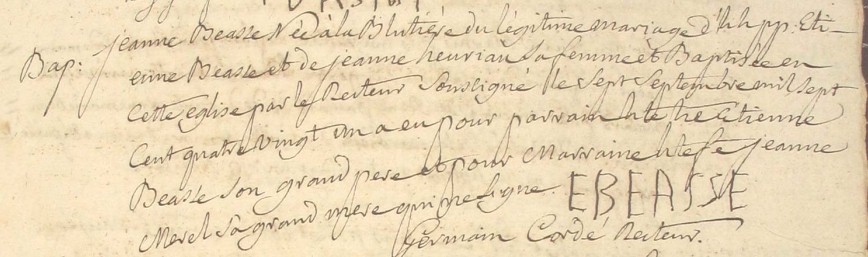 Bap: jeanne Beasse Née à la Blutiére du légitime mariage d'h h pp: Eti-
enne Beasse et de jeanne heuriau sa femme et Baptisée en
Cette église par le Recteur Soussigné le Sept Septembre mil Sept
Cent quatre vingt un a eu pour parrain hte he Etienne
Beasse Son grand pere et pour Marraine hte fe jeanne
Merel Sa grand mere qui ne Signe. EBEASSE
Germain Cordé Recteur.